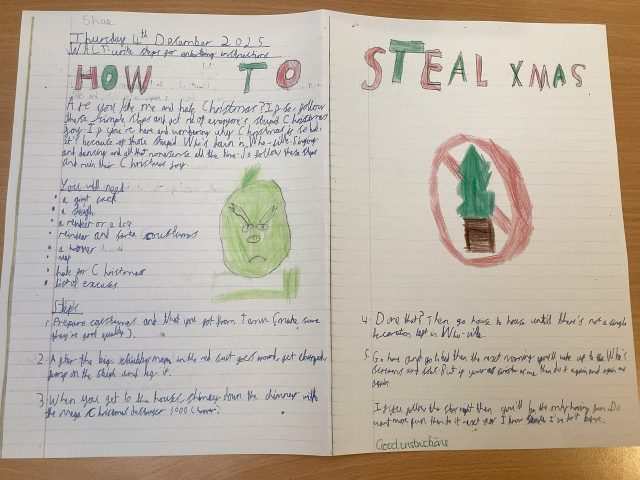 Shae
Thursday 4th December 2025
WALT: write steps for entertaining instructions
HOW TO
Are you like me and hate Christmas? If so, follow
these simple steps and get rid of everyone's stupid Christmas
joy. If you're here and wondering why Christmas is so bad,
it's because of those stupid Who's down in Who-ville. Singing
and dancing and all that nonsense all the time. So follow these steps
and ruin their Christmas joy.
You will need
• a giant sack
• a sleigh
• a reindeer or a dog
• reindeer and santa costumes
• a hoover
• map
• hate for Christmas
• list of excuses
Steps
1. Prepare costumes and that you got from Temu (make sure
they're good quality).
2. After the big chubby man in the red suit goes around, get changed
jump on the sleigh and leg it.
3. When you get to the houses shimey down the chimney with
the Mega Christmas destroyer 1000 hoover.
STEAL XMAS
4. Done that? Then go house to house until there's not a single
decoration left in Who-ville.
5. Go home and go to bed then the next morning you'll wake up to the Who's
screams and sobs. & if your as sinister as me then do it again and again and
again.
If you follow the steps right then you'll be the only having fun. Do
want more fun then do it next year. I know I've done it before.
Good instructions